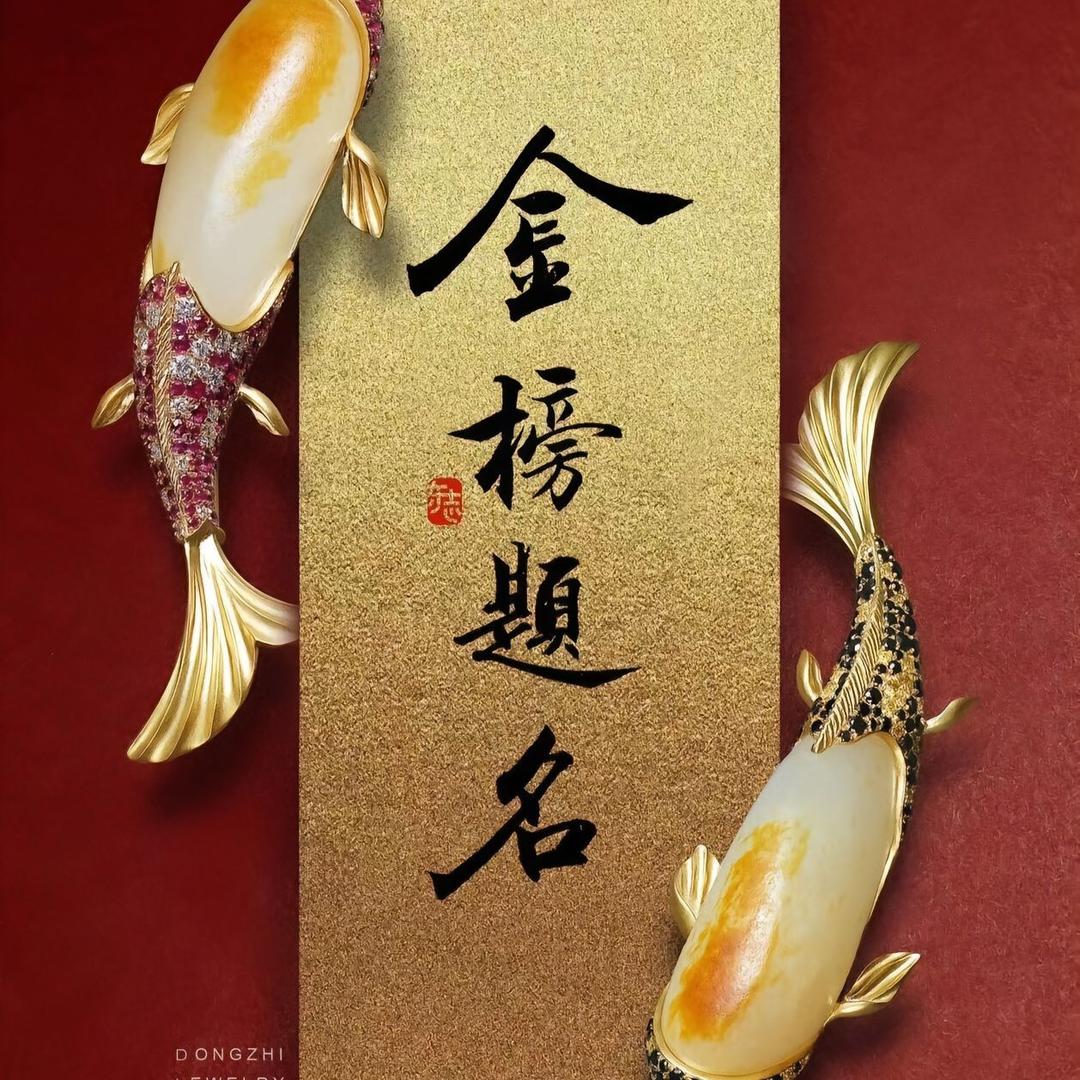 金榜題名
DONGZHI
JEWELRY